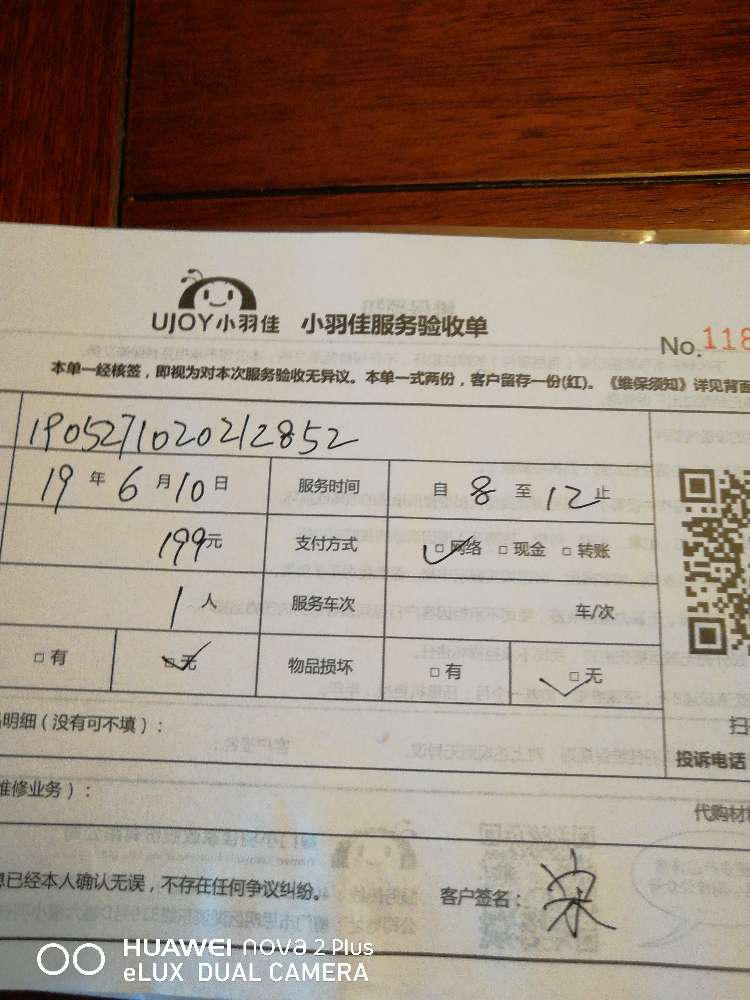 UJOY小羽佳 小羽佳服务验收单
No.118
本单一经核签，即视为对本次服务验收无异议。本单一式两份，客户留存一份(红)。《维保须知》详见背面
1905271020212852
19 年 6 月 10 日 服务时间 自 8 至 12 止
199元 支付方式 □网络 □现金 □转账
1 人 服务车次 车/次
□有 □无 物品损坏 □有 □无
明细（没有可不填）： 扫
投诉电话
维修业务）： 代购材
息已经本人确认无误，不存在任何争议纠纷。 客户签名：
HUAWEI nova 2 Plus
eLUX DUAL CAMERA